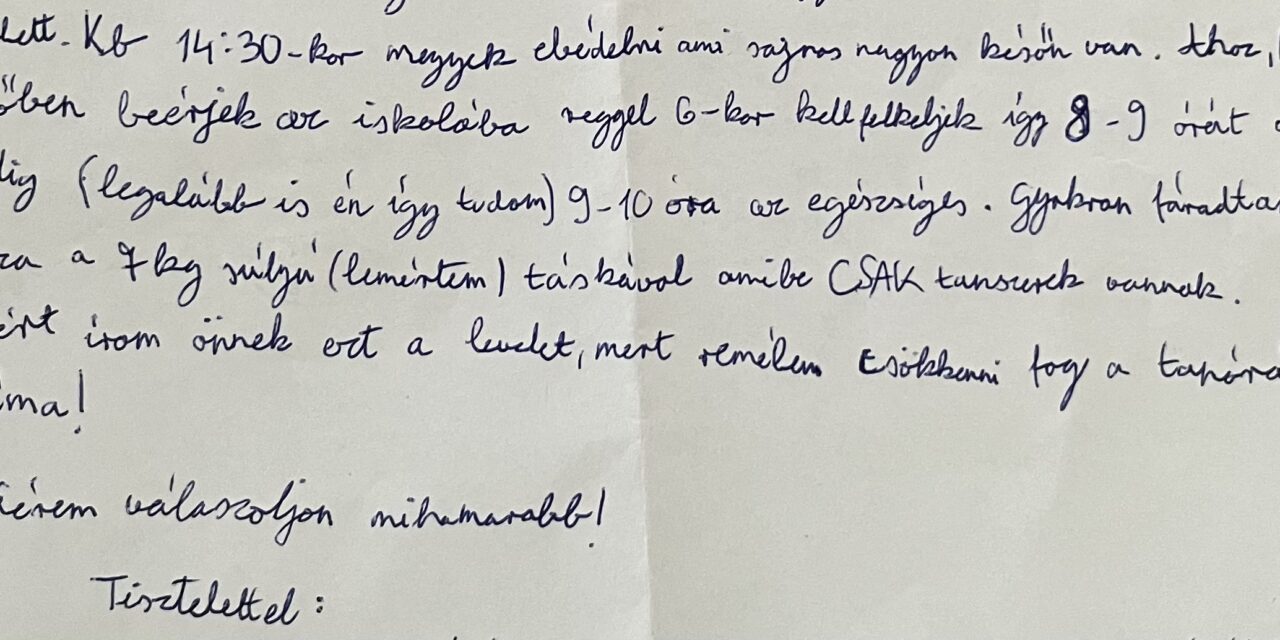 lett. Kb 14:30-kor megyek ebédelni ami sajnos nagyon későn van. Ahoz,
őben beérjek az iskolába reggel 6-kor kell felkeljek így 8-9 órát
dig (legalább is én így tudom) 9-10 óra az egészséges. Gyakran fáradtan
za a 7kg súlyú (lemértem) táskával amibe CSAK tanszerek vannak.
ért írom önnek ezt a levelet, mert remélem csökkenni fog a tanóra
áma!
Kérem válaszoljon mihamarabb!
Tisztelettel: